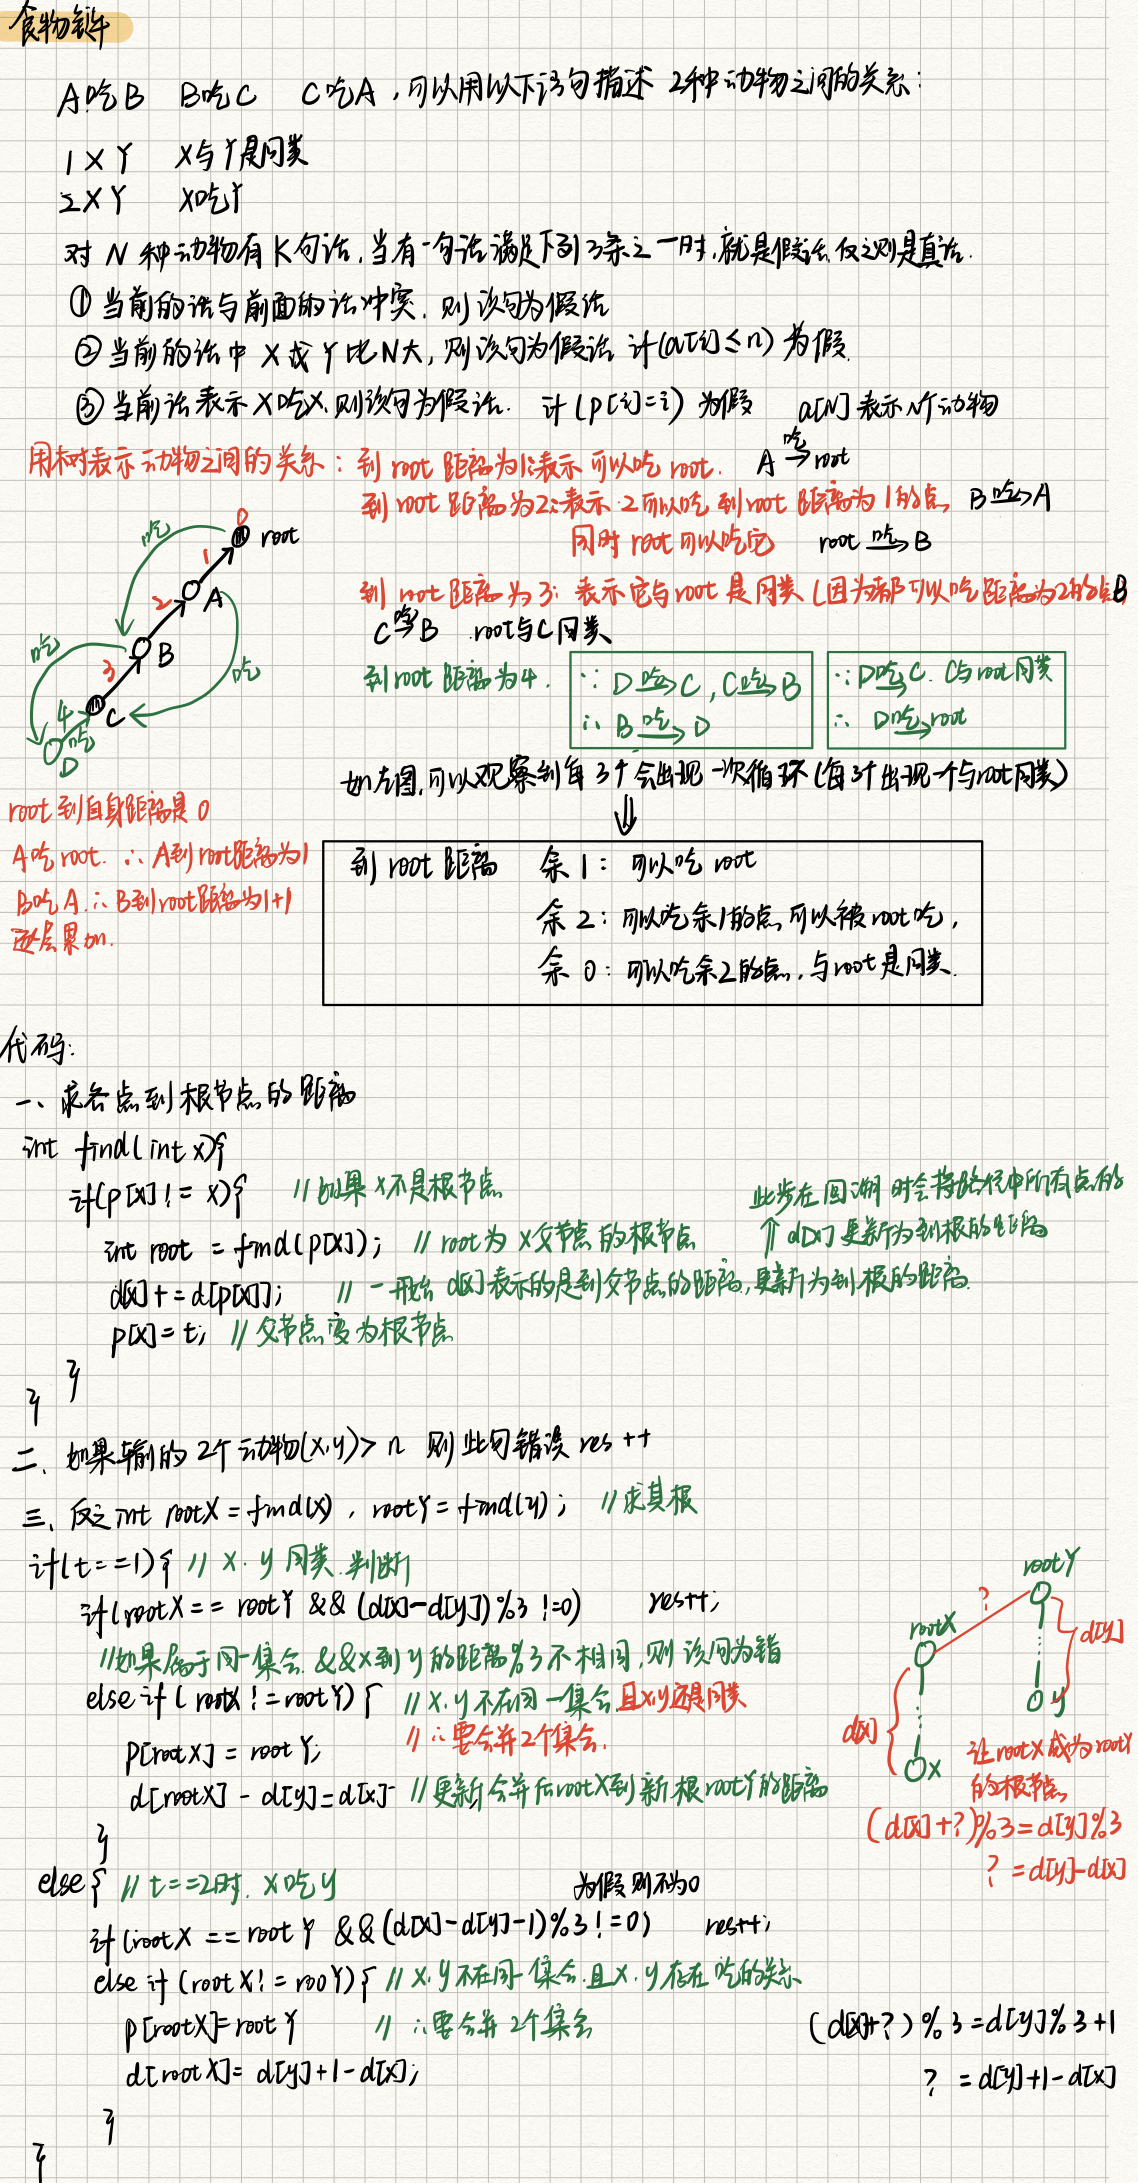 食物链
A吃B B吃C C吃A，可以用以下语句描述 2种动物之间的关系：
1 X Y X与Y是同类
2 X Y X吃Y
对 N 种动物有K句话，当有一句话满足下列3条之一时，就是假话，反之则是真话.
① 当前的话与前面的话冲突，则该句为假话
② 当前的话中 X 或 Y 比N大，则该句为假话 if(a[i]≤n) 为假.
③ 当前话表示X吃X，则该句为假话. if(p[i]=i) 为假 a[N]表示N个动物
用树表示动物之间的关系：到 root 距离为1:表示可以吃 root. A 吃→ root
到 root 距离为2:表示·2可以吃 到root 距离为1的点 B 吃→ A
同时 root 可以吃它 root 吃→ B
到 root 距离为3: 表示它与root 是同类 (因为都可以吃距离为2的点B
C 吃→ B . root与C同类
到root 距离为4.
∵ D 吃→ C , C 吃→ B
∴ B 吃→ D
∵ D 吃→ C. C与root同类
∴ D 吃→ root
0 root
吃 1
2 A
吃 B 吃
3
4 C
吃
D
如左图,可以观察到每 3个会出现一次循环(每3个出现一个与root同类)
⇓
root到自身距离是0
A吃root. ∴ A到root距离为1
B吃A. ∴ B到root距离为1+1
逐层累加.
到 root 距离 余 1： 可以吃 root
余 2： 可以吃余1的点, 可以被root吃，
余 0： 可以吃余2的点，与root是同类.
代码:
一、求各点到根节点的距离
int find(int x){
if(p[x] != x){ //如果 x不是根节点
此步在回溯时会将路径中所有点的
int root = find(p[x]); // root为 x父节点的根节点 ⇑ d[x]更新为到根的距离
d[x] += d[p[x]]; // 一开始 d[x]表示的是到父节点的距离,更新为到根的距离.
p[x] = t; // 父节点变为根节点
}
}
二、如果输的 2个动物(x,y)> n 则此句错误 res ++
三、反之int rootX = find(x) , rootY = find(y) ; //求其根
if(t==1){ // x. y 同类.判断
if(rootX == rootY && (d[x]-d[y])%3 !=0) res++;
//如果属于同一集合. &&x到y的距离%3不相同,则该句为错
else if( rootX != rootY) { // x.y 不在同一集合.且x.y还是同类
p[rootX] = rootY; // ∴要合并2个集合.
d[rootX] - d[y]=d[x]- //更新合并后rootX到新根rootY的距离
}
rootY
?
rootX
d[y]
y
d[x]
x
让rootX成为rootY
的根节点
(d[x]+?)%3=d[y]%3
? =d[y]-d[x]
else{ // t==2时. x吃y 为假则不为0
if(rootX == rootY &&(d[x]-d[y]-1)%3!=0) res++;
else if (rootX!= rooY){ // x.y不在同一集合.且x.y存在吃的关系
p[rootX]=rootY // ∴要合并 2个集合
d[rootX]= d[y]+1-d[x];
(d[x]+?)%3=d[y]%3+1
? =d[y]+1-d[x]
}
}